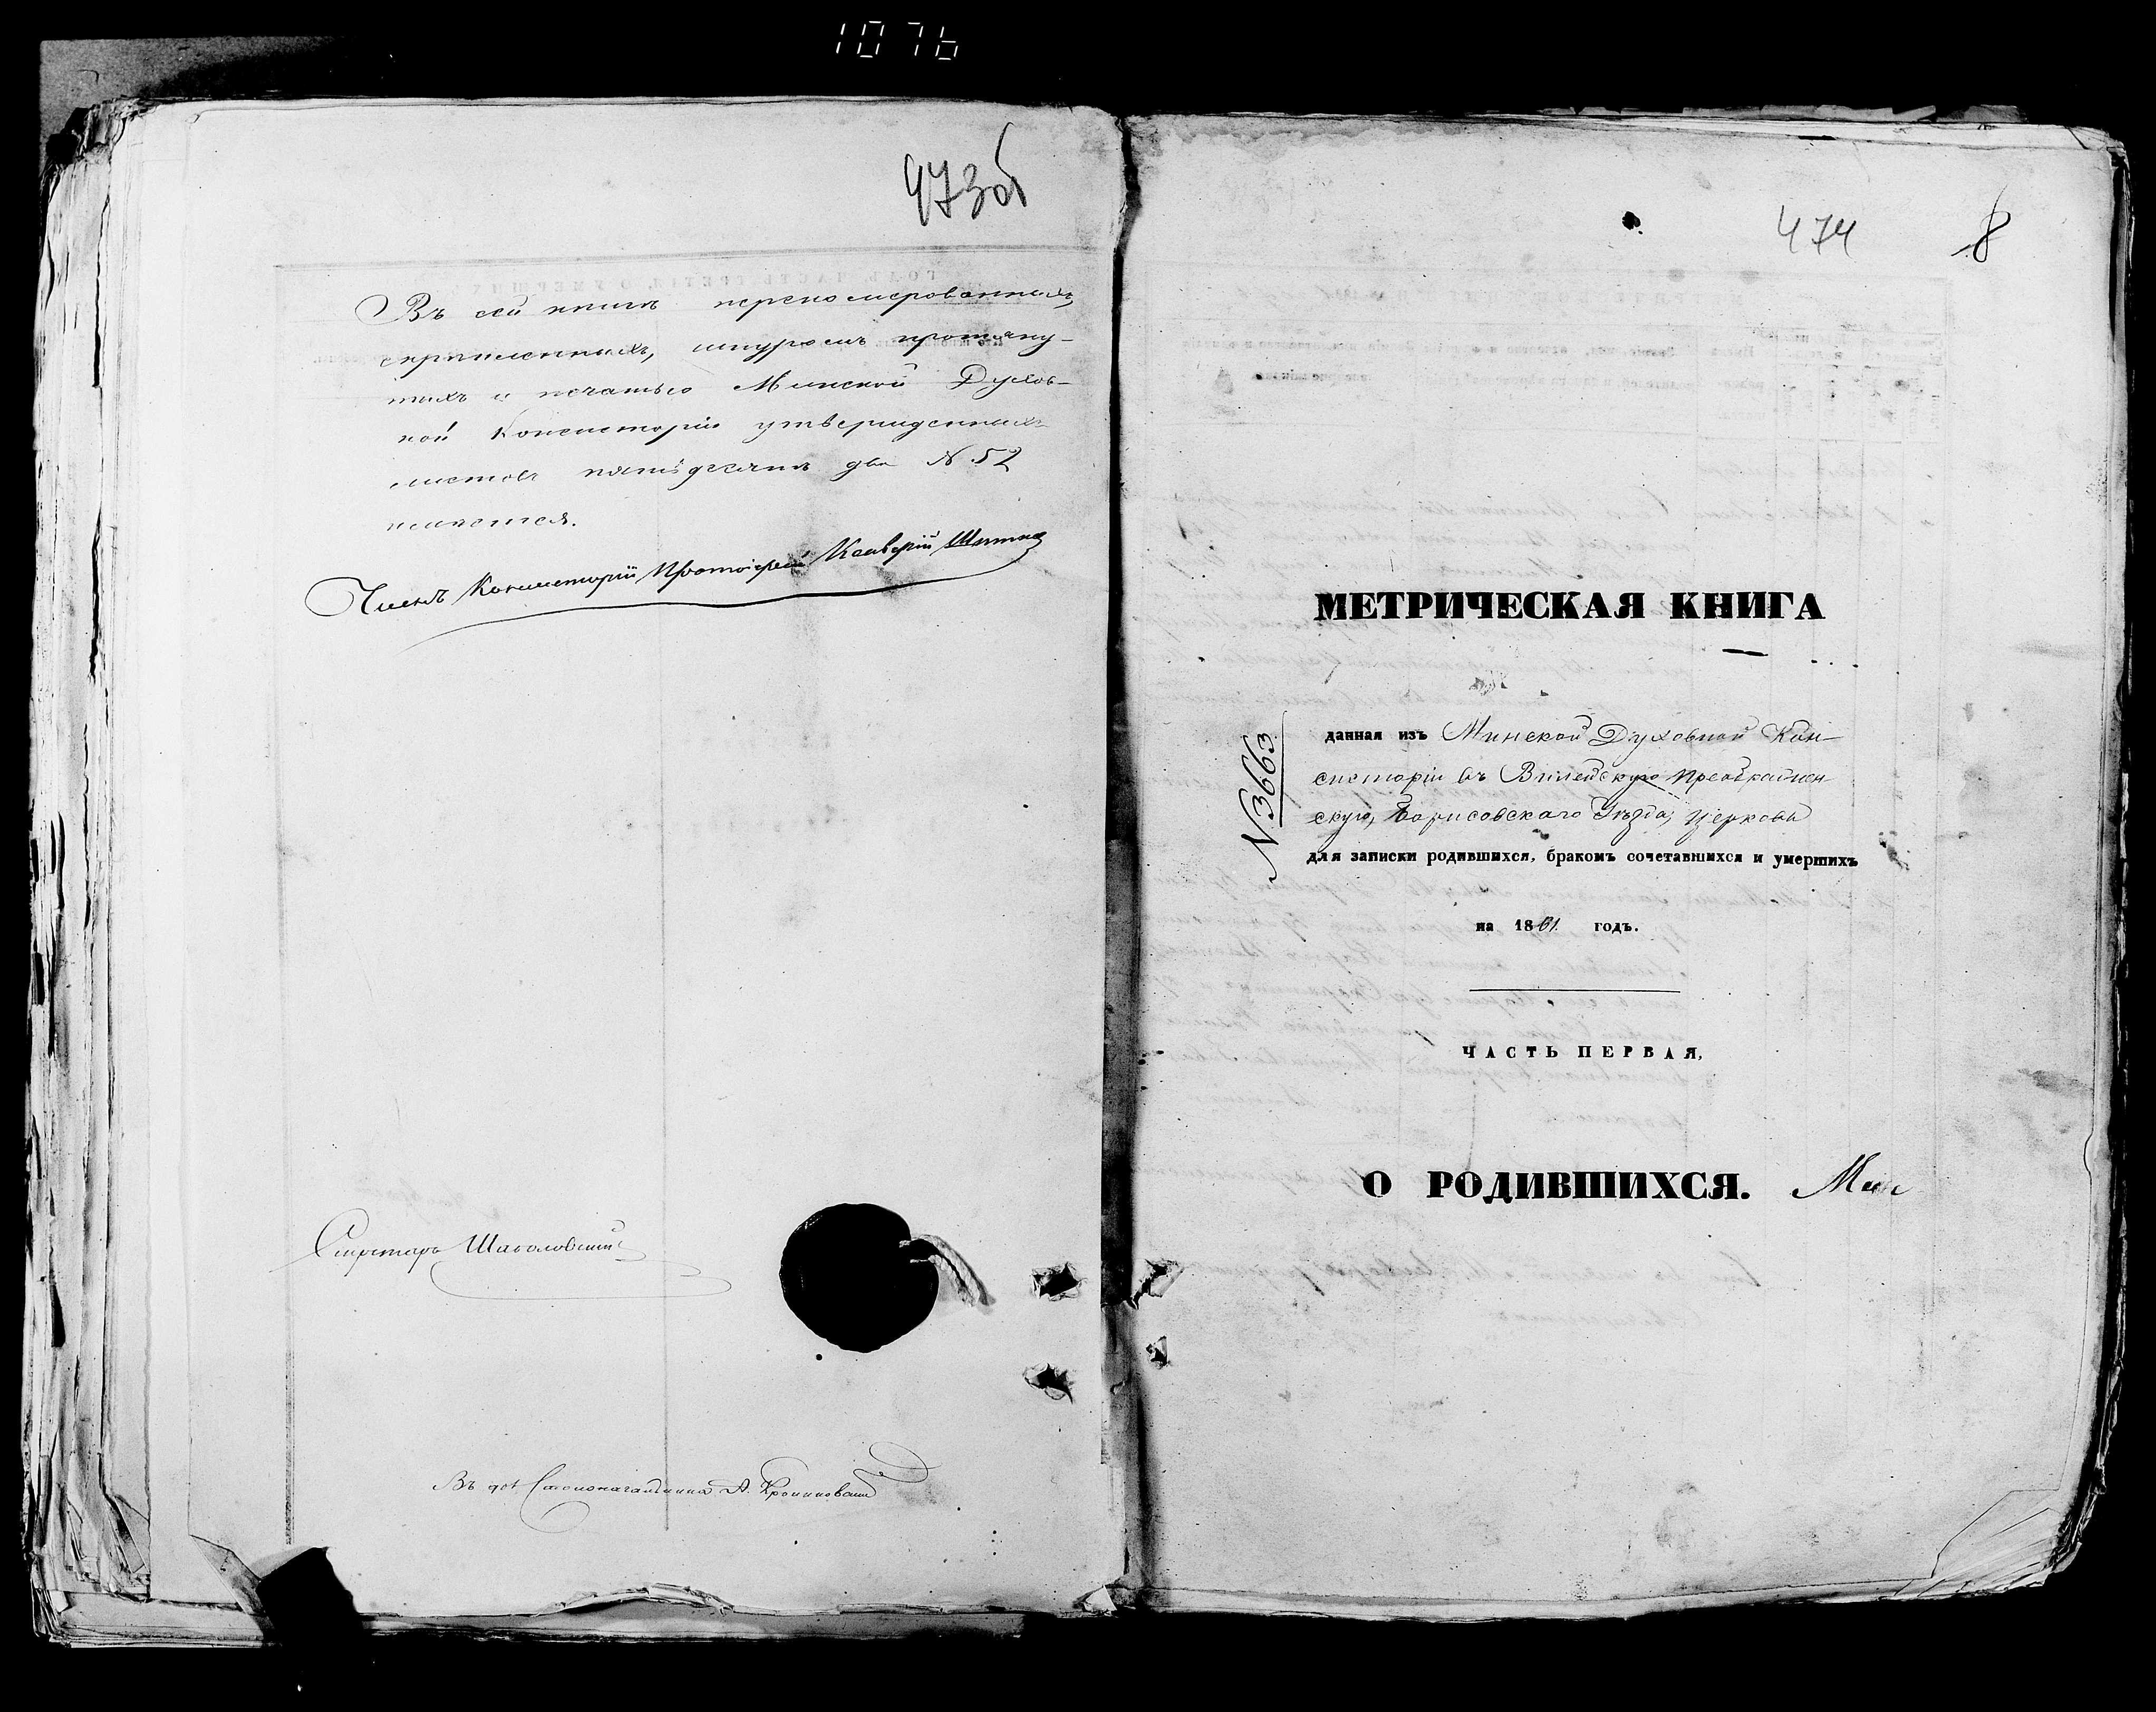 1076
473об
Въ сей книгѣ перенумерованныхъ,
скрѣпленныхъ, шнуромъ протяну-
тыхъ и печатью Минской Духов-
ной Консисторіи утвержденныхъ
листовъ пятьдесятъ два N. 52
имѣется.
Членъ Консисторіи Протоіерей Ксаверій
Секретарь
Въ дол. Столоначальника А.
474 8
МЕТРИЧЕСКАЯ КНИГА
N 3663
данная изъ Минской Духовной Кон-
систоріи въ Вилейскую Преображен
скую, Борисовскаго Уѣзда, церковь
для записки родившихся, бракомъ сочетавшихся и умершихъ
на 1861. годъ.
ЧАСТЬ ПЕРВАЯ,
О РОДИВШИХСЯ.